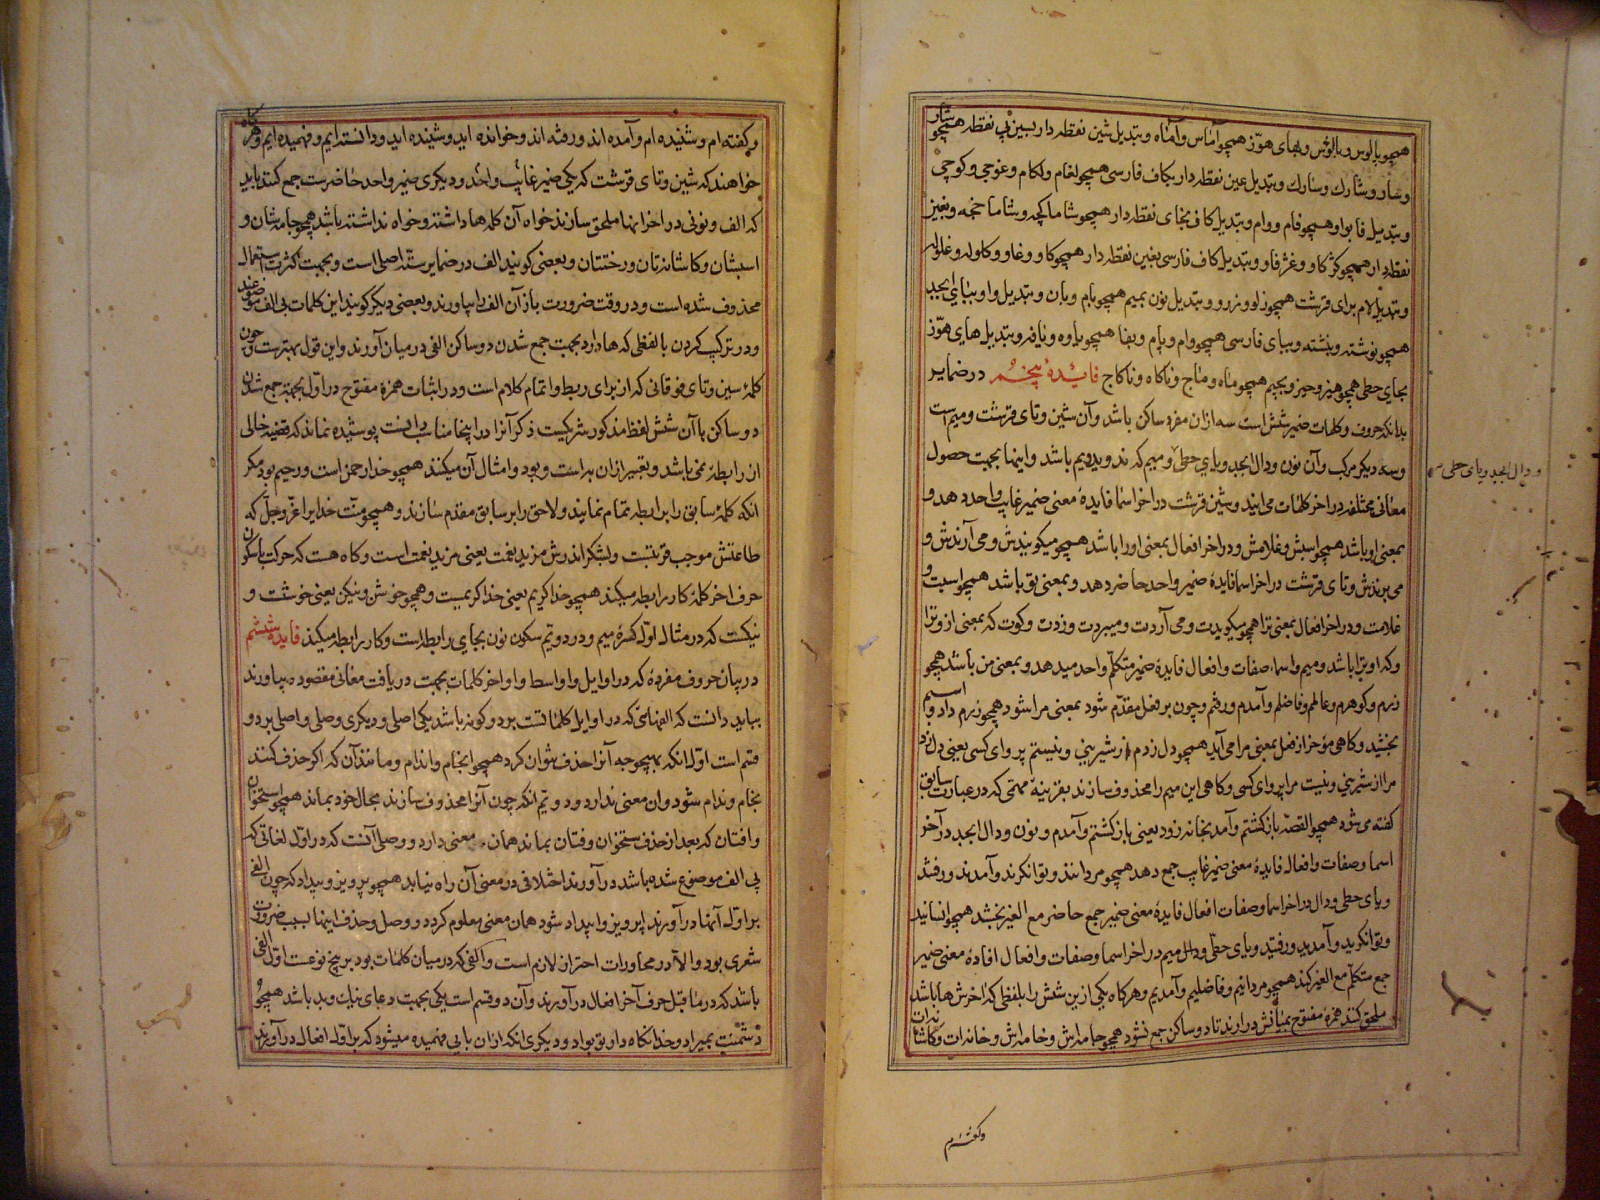 همچو بالوس و بالوش و بهای هوّز همچو آماس و آماه و بتبدیل شین نقطه دار بسین بی نقطه همچو شار
و سار و شارك و سارك و بتبدیل غین نقطه دار بکاف فارسی همچو لغام و لکام و غوجی و کوجی
و بتبدیل فا بواو همچو فام و وام و بتبدیل کاف بخای نقطه دار همچو شاماکچه و شاماخچه و بغین
نقطه دار همچو کژکاو و غژغاو و بتبدیل کاف فارسی بغین نقطه دار همچو کاو و غاو و کاوله و غلوله
و بتبدیل لام برای قرشت همچو زلو و زرو و بتبدیل نون بمیم همچو بام و بان و بتبدیل واو ببای ابجد
همچو نوشته و نبشته و ببای فارسی همچو وام و پام و بفا همچو یاوه و یافه و بتبدیل های هوّز
بجای حطی همچو هیز و حیز و بجیم همچو ماه و ماج و ناکاه و ناکاج فایدهٔ پنجم در ضمایر
بدانکه حروف و کلمات ضمیر شش است سه از ان مفرد ساکن باشد و آن شین و تای قرشت و میم است
و سه دیکر مرکب و آن نون و دال ابجد و یای حطی و میم که ند و ید و یم باشد و اینها بجهت حصول
و دال ابجد و یای حطی
معانی مختلفه در اخر کلمات می ایند و شین قرشت در اخر اسما فایدهٔ معنی ضمیر غایب واحد دهد و
بمعنی او باشد همچو اسبش و غلامش و در اخر افعال بمعنی او را باشد همچو میکویندش و می آرندش و
می برندش و تای قرشت در اخر اسما فایدهٔ ضمیر واحد حاضر دهد و بمعنی تو باشد همچو اسبت و
غلامت و در اخر افعال بمعنی ترا همچو میکویدت و می آردت و میبردت و زدت و کوت که بمعنی از و ترا
و که او ترا باشد و میم و اسما، صفات و افعال فایدهٔ ضمیر متکلم واحد میدهد و بمعنی من باشد همچو
زرم و کوهرم و عالم و فاضلم و آمدم و رفتم و چون بر فعل مقدّم شود بمعنی مرا شود همچو زرم داد و اسبم
بخشید و کاهی مؤخر از فعل بمعنی مرا می آید همچو دل زدم از شیرینی و نیستم پروای کسی یعنی دل زد
مرا از شیرینی و نیست مرا پروای کسی و کاهی این میم را محذوف سازند بقرینهٔ که در عبارت سابق
کفته می شود همچو القصّه بازکشتم و آمد بخانه زود یعنی بازکشتم و آمدم و نون و دال ابجد در آخر
اسما و صفات و افعال فایدهٔ معنی ضمیر غایب جمع دهد همچو مردانند و توانکرند و آمدند و رفتند
و یای حطی و دال در اخر اسما و صفات افعال فایدهٔ معنی ضمیر جمع حاضر مع الغیر بخشد همچو انسانید
و توانکرید و آمدید و رفتید و یای حطّی و میم در اخر اسما و صفات و افعال افادهٔ معنی ضمیر
جمع متکلّم مع الغیر کند همچو مردانیم و فاضلیم و آمدیم و هرکاه یکی از ین شش را بلفظی که اخرش ها باشد
ملحق کنند همزهٔ مفتوح بمیانش درارند تا دو ساکن جمع نشود همچو جامه‌اش و خامه‌اش و خانه‌ات و کاشانه‌ات
وکفته‌ام
و کفته ام و شنیده ام و آمده اند و رفته اند و خوانده اید و شنیده اید و دانسته ایم و فهمیده ایم و هرکاه
خواهند که شین و تای قرشت که یکی ضمیر غایب واحد و دیکری ضمیر واحد حاضرست جمع کنند باید
که الف و نونی در اخر انها ملحق سازند خواه آن کلمه ها داشته و خواه نداشته باشد همچو جامه شان و
اسبشان و کاشانه تان و رختتان و بعضی کویند الف در ضمایر ستّه اصلی است و بجهت کثرت استعمال
محذوف شده است و در وقت ضرورت باز آن الف را بیاورند و بعضی دیکر کویند این کلمات بی الف موضوعند
و در ترکیب کردن با لفظی که ها دارد بجهت جمع شدن دو ساکن الفی در میان آورند و این قول بهترست و چون
کلمهٔ سین و تای فوقانی که از برای ربط و اتمام کلام است و در اثبات همزهٔ مفتوح در اول بجهة جمع شدن
دو ساکن با آن شش لفظ مذکور شریکست ذکر آنرا در اینجا مناسب دانست پوشیده نماند که قضیه خالی
از رابطه نمی باشد و تعبیر از ان به است و بود و امثال آن میکنند همچو خدا رحمن است و رحیم بود مکر
انکه کلمهٔ سابق را برابطه تمام نمایند و لاحق را بر سابق مقدم سازند و همچو منّت خدایرا عزّ و جلّ که
طاعتش موجب قربتست و بشکر اندرش مزید نعمت یعنی مزید نعمت است و کاه هست که حرکت یا سکون
حرف اخر کلمهٔ کار رابطه میکند همچو خدا کریم یعنی خدا کریمست و همچو خوش و نیکن یعنی خوشت و
نیکست که در مثال اول کسرهٔ میم و در دویم سکون نون بجای رابطه است و کار رابطه میکند فایدهٔ ششم
در بیان حروف مفرده که در اوایل و اواسط و اواخر کلمات بجهت دریافت معانی مقصوده بیاورند
بباید دانست که الفهائی که در اوایل کلمات بر دو کونه باشد یکی اصلی و دیکری وصلی و اصلی بر دو
قسم است اول انکه بهیچوجه آنرا حذف نتوان کرد همچو انجام و اندام و مانند آن که اکر حذف کنند
نجام و ندام شود و ان معنی ندارد و دویم انکه چون آنرا محذوف سازند بحال خود بماند همچو استخوان
و افتان که بعد از حذف ستخوان و فتان بماند همان معنی دارد و وصلی آنست که در اول لغاتی که
بی الف موضوع شده باشد در آورند اختلافی در معنی آن راه نیابد همچو پرویز و بیداد که چون الفی
بر اول آنها در آورند اپرویز و ابیداد شود همان معنی معلوم کردد و وصل و حذف اینها بسبب ضرورت
شعری بود و الّا در محاورات احتراز لازم است و الفی که در میان کلمات بود بر پنج نوعست اول الفی
باشد که در ما قبل حرف آخر افعال در آورند و آن دو قسم است یکی بجهت دعای نیك و بد باشد همچو
دشمنت بمیراد و خدا نکاه دار تو بواد و دیکری انکه از ان بایی فهمیده میشود که بر اول افعال در آورند